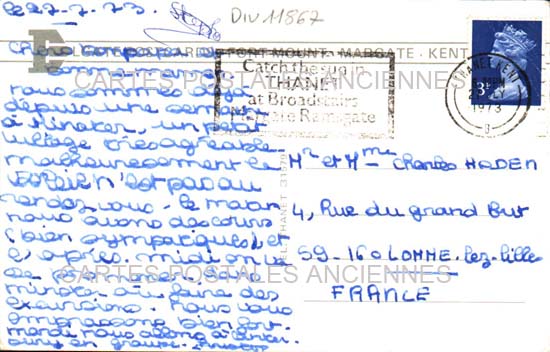 le 22-7-73.
DIV 11867
ELGATE POSTCARDS FORT MOUNT MARGATE KENT
Catch the sun in
THANET
at Broadstairs
Margate Ramsgate
THANET KENT
1973
CARTES POSTALES ANCIENNES
nous sommes déjà
depuis une semaine
à Minster, un petit
village très agréable
malheureusement le
soleil n'est pas au
rendez vous. le matin
nous avons des cours
(bien sympatiques) et
l'après-midi on va
minster ou faire des
excursions. Nous vous
embrassons bien fort.
mardi nous allons à
en groupe.
THANET
Mr et Mme Charles HADEN
4, Rue du grand But
59-160 LOMME-lez-lille
FRANCE
CARTES POSTALES ANCIENNES